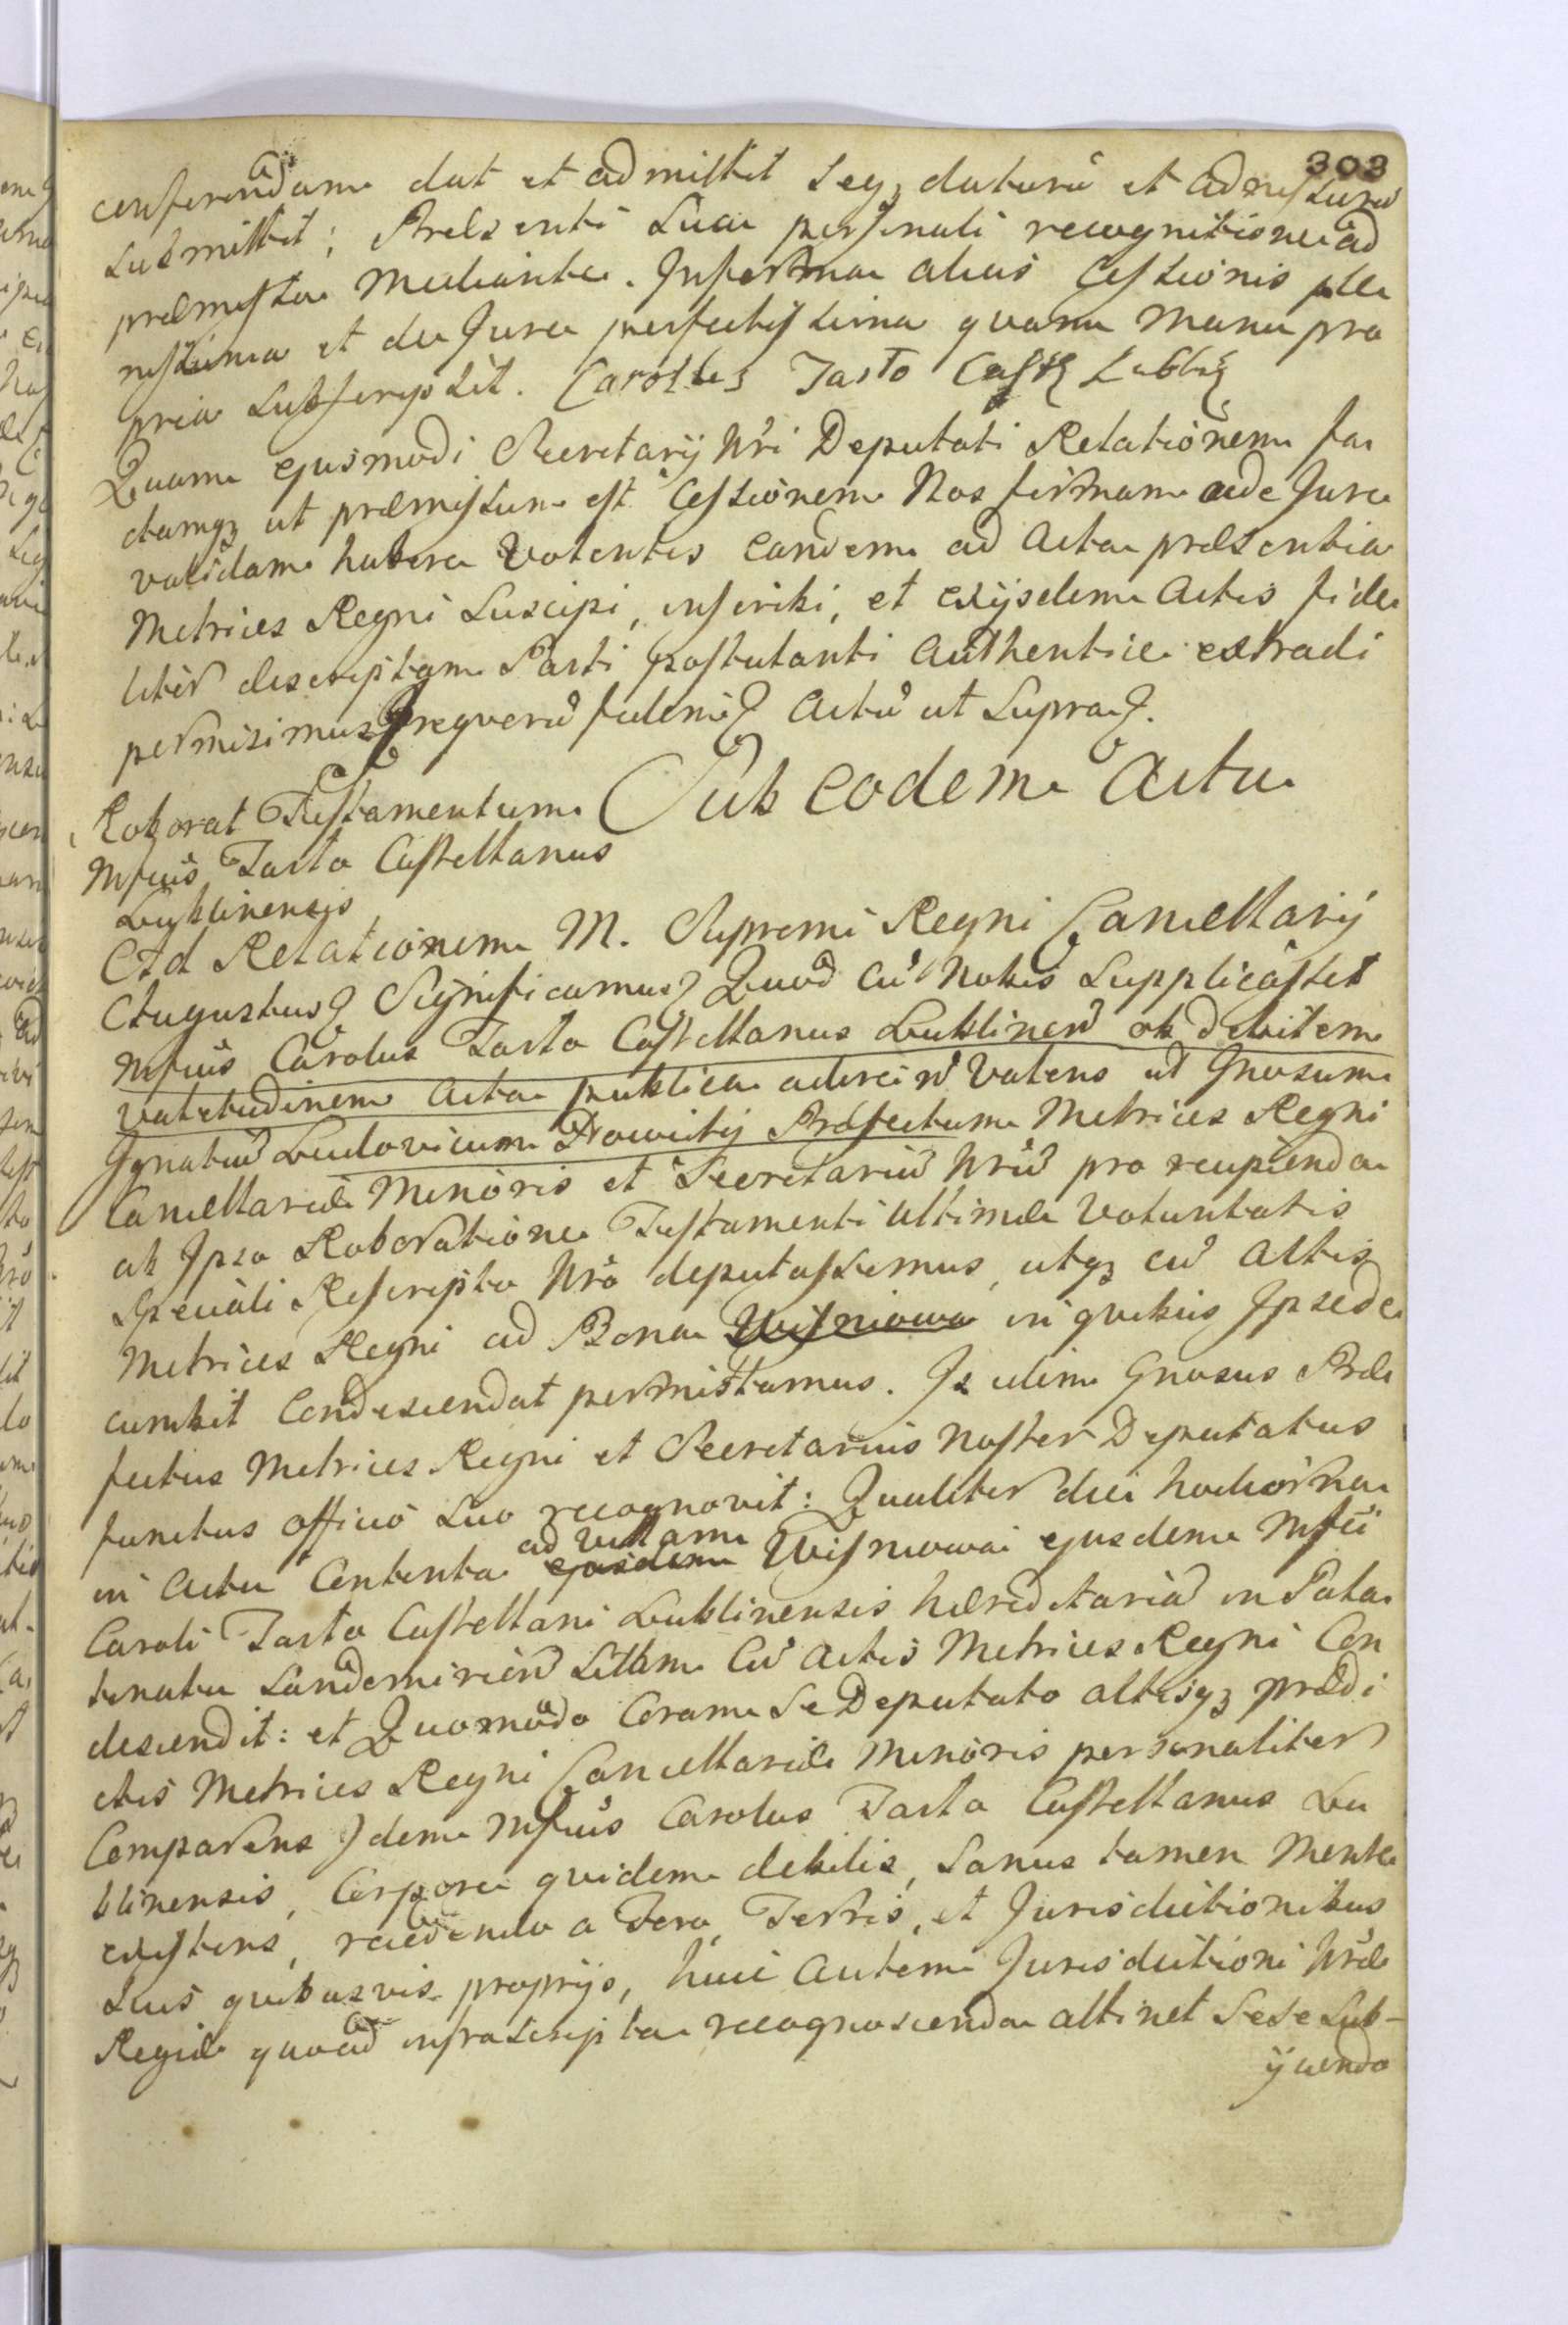 303
conferendam dat et admittit Seqz daturũ et admissurũ
submittit; Præsenti Sua personali recognitione ad
præmissa mediante. In forma alias Cessionis ple
nissima et de Jure perfectissima quam manu pro
pria subscripsit. Carolus Tarło
Quam ejusmodi Secretarij Nri Deputati Relationem fa
ctamqz ut præmissum est Cessionem Nos firmam ac de Jure
validam habere Volentes eandem ad Acta præsentia
Metrices Regni Suscipi, inscribi, et ex ijsdem Actis fide
liter descriptam Parti postulanti Authentice extradi
permisimus In quorũ fidem Actũ ut Supra.
Sub eodem Actu
Roborat Testamentum
Mfcus Tarło Castellanus
Lublinensis
Ad Relationem M. Supremi Regni Cancellarij
Augustus Significamus Quod cũ Nobis Supplicasset
Mfcus Carolus Tarło Castellanus Lublinen ob debilem
valetudinem Acta publica adire ñ Valens ut Gnosum
Ignatiũ Ludovicum Præfectum Metrices Regni
Cancellariæ Minoris et Secretariũ Nrũ pro recipienda
ab Ipso Roboratione Testamenti Ultimæ Voluntatis
Speciali Rescripto Nro deputassemus, utqz cũ Actis
Metrices Regni ad Bona Wisniowa in quibus Ipse de
cumbit Condescendat permittamus. Is idem Gnosus Præ
fectus Metrices Regni et Secretarius Noster Deputatus
functus officio Suo recognovit: Qualiter die hodierna
in Actu Contenta ad Villam ejusdem Wisniowa ejusdem Mfci
Caroli Tarło Castellani Lublinensis hæreditariã in Pala
tinatu Sandomirien Sittam Cũ Actis Metrices Regni Con
descendit: et Quomodo Coram Se Deputato Actisqz prædi
ctis Metrices Regni Cancellariæ Minoris personaliter
Comparens Idem Mfcus Carolus Tarło Castellanus Lu
blinensis, Corpore quidem debilis, Sanus tamen Mente
existens, recedendo a Foro, Terris, et Jurisdictionibus
Suis quibusvis proprijs, huic autem Jurisdictioni Nræ
Regiæ quoad infrascripta recognoscenda attinet Sese Sub-
ijciendo